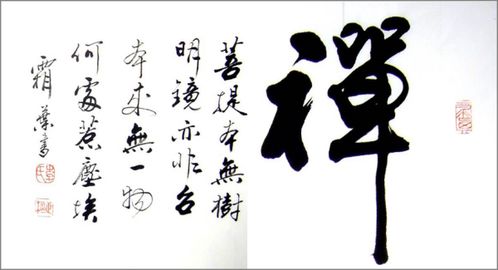 禪
菩提本無樹
明鏡亦非台
本来無一物
何處惹塵埃
霜葉書